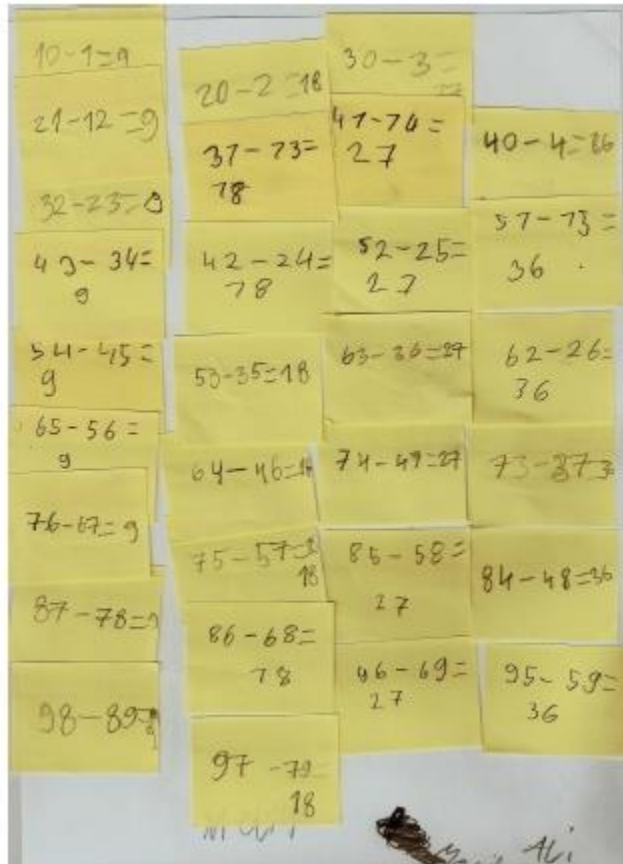 10-1=9
21-12=9
32-23=9
43-34=
9
54-45=
9
65-56=
9
76-67=9
87-78=9
98-89=9
20-2=18
31-13=
18
42-24=
18
53-35=18
64-46=18
75-57=
18
86-68=
18
97-79=
18
30-3=
41-14=
27
52-25=
27
63-36=27
74-47=27
85-58=
27
96-69=
27
40-4=36
51-15=
36
62-26=
36
73-37=36
84-48=36
95-59=
36
Ali